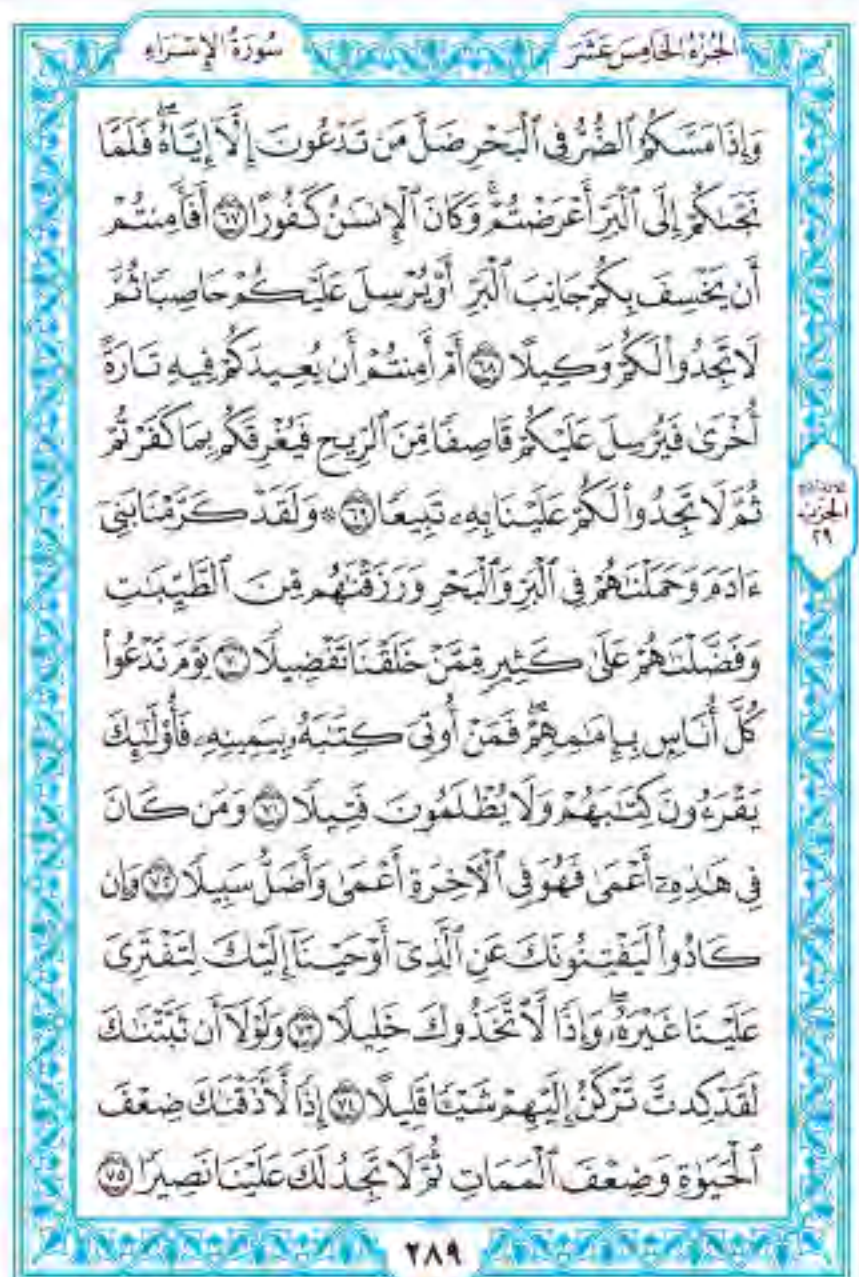 الجُزْءُ الخَامِسَ عَشَرَ
سُورَةُ الإِسْرَاءِ
وَإِذَا مَسَّكُمُ ٱلضُّرُّ فِي ٱلْبَحْرِ ضَلَّ مَن تَدْعُونَ إِلَّآ إِيَّاهُۖ فَلَمَّا
نَجَّىٰكُمْ إِلَى ٱلْبَرِّ أَعْرَضْتُمْۚ وَكَانَ ٱلْإِنسَٰنُ كَفُورًا ٦٧ أَفَأَمِنتُمْ
أَن يَخْسِفَ بِكُمْ جَانِبَ ٱلْبَرِّ أَوْ يُرْسِلَ عَلَيْكُمْ حَاصِبًا ثُمَّ
لَا تَجِدُوا۟ لَكُمْ وَكِيلًا ٦٨ أَمْ أَمِنتُمْ أَن يُعِيدَكُمْ فِيهِ تَارَةً
أُخْرَىٰ فَيُرْسِلَ عَلَيْكُمْ قَاصِفًا مِّنَ ٱلرِّيحِ فَيُغْرِقَكُم بِمَا كَفَرْتُمْ
ثُمَّ لَا تَجِدُوا۟ لَكُمْ عَلَيْنَا بِهِۦ تَبِيعًا ٦٩ ۞ وَلَقَدْ كَرَّمْنَا بَنِىٓ
ءَادَمَ وَحَمَلْنَٰهُمْ فِي ٱلْبَرِّ وَٱلْبَحْرِ وَرَزَقْنَٰهُم مِّنَ ٱلطَّيِّبَٰتِ
وَفَضَّلْنَٰهُمْ عَلَىٰ كَثِيرٍ مِّمَّنْ خَلَقْنَا تَفْضِيلًا ٧٠ يَوْمَ نَدْعُوا۟
كُلَّ أُنَاسٍۭ بِإِمَٰمِهِمْۖ فَمَنْ أُوتِىَ كِتَٰبَهُۥ بِيَمِينِهِۦ فَأُو۟لَٰٓئِكَ
يَقْرَءُونَ كِتَٰبَهُمْ وَلَا يُظْلَمُونَ فَتِيلًا ٧١ وَمَن كَانَ
فِي هَٰذِهِۦٓ أَعْمَىٰ فَهُوَ فِي ٱلْءَاخِرَةِ أَعْمَىٰ وَأَضَلُّ سَبِيلًا ٧٢ وَإِن
كَادُوا۟ لَيَفْتِنُونَكَ عَنِ ٱلَّذِىٓ أَوْحَيْنَآ إِلَيْكَ لِتَفْتَرِىَ
عَلَيْنَا غَيْرَهُۥۖ وَإِذًا لَّٱتَّخَذُوكَ خَلِيلًا ٧٣ وَلَوْلَآ أَن ثَبَّتْنَٰكَ
لَقَدْ كِدتَّ تَرْكَنُ إِلَيْهِمْ شَيْـًٔا قَلِيلًا ٧٤ إِذًا لَّأَذَقْنَٰكَ ضِعْفَ
ٱلْحَيَوٰةِ وَضِعْفَ ٱلْمَمَاتِ ثُمَّ لَا تَجِدُ لَكَ عَلَيْنَا نَصِيرًا ٧٥
الحزب
٢٩
٢٨٩